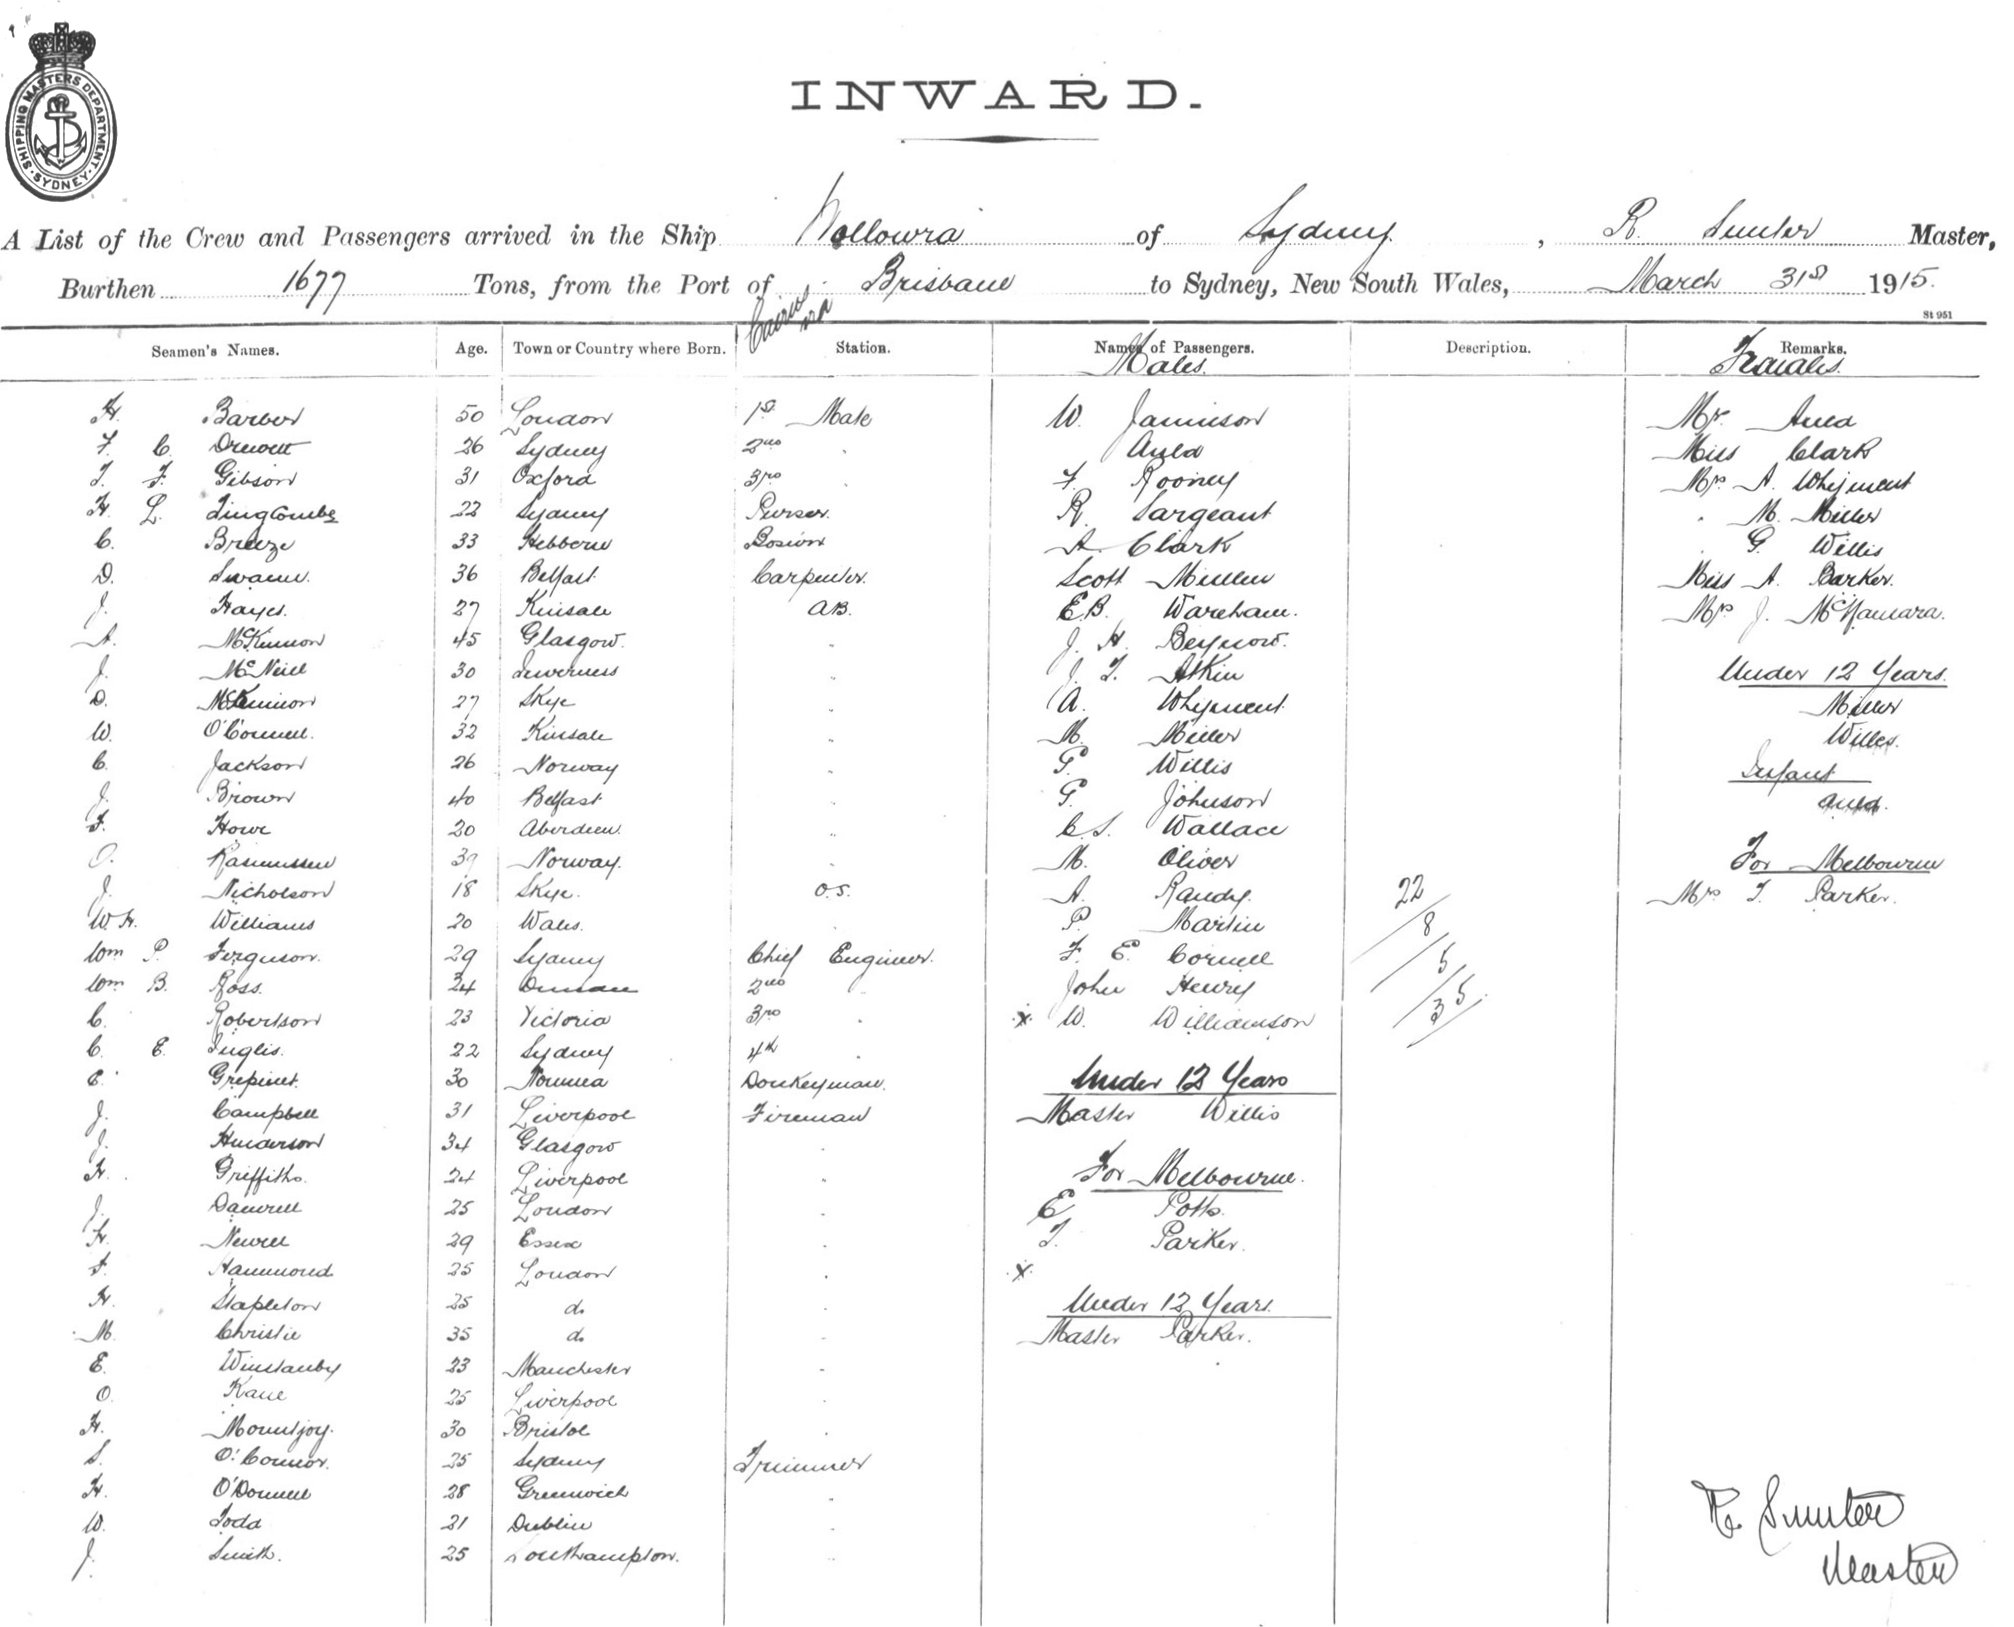 SHIPPING MASTERS DEPARTMENT
· SYDNEY ·
INWARD.
A List of the Crew and Passengers arrived in the Ship Wollowra of Sydney, R. Sunter Master,
Burthen 1677 Tons, from the Port of Brisbane to Sydney, New South Wales, March 31st 1915.
St 951
Seamen's Names. Age. Town or Country where Born. Station. Names of Passengers. Description. Remarks.
Males. Females.
H. Barber 50 London 1st Mate W. Jamieson Mrs. Auld
F. C. Drewett 26 Sydney 2nd " Auld Miss Clark
T. F. Gibson 31 Oxford 3rd " F. Rooney Mrs A. Whyment
H. L. Lingcombe 22 Sydney Purser. R. Sargeant " M. Miller
C. Breeze 33 Hebborne Bosion A. Clark " G. Willis
D. Swann. 36 Belfast Carpenter. Scott Mullen Miss A. Barker.
J. Hayes. 27 Kinsale AB. E.B. Wareham. Mrs J. McNamara.
A. McKinnon 45 Glasgow. " J. H. Beynow.
J. McNeill 30 Inverness " J. T. Atkin Under 12 Years.
D. McKinnon 27 Skye " A. Whyment. Miller
W. O'Connell. 32 Kinsale " M. Miller Willis.
C. Jackson 26 Norway " G. Willis Infant
J. Brown 40 Belfast " G. Johnson Auld.
F. Howe 20 Aberdeen. " C. S. Wallace
O. Rasmussen 39 Norway. " M. Oliver For Melbourne
J. Nicholson 18 Skye. O.S. A. Randy. 22 Mrs T. Parker.
W. H. Williams 20 Wales. P. Martin 8
Wm P. Ferguson. 29 Sydney Chief Engineer. F. E. Cornell 5
Wm B. Ross. 34 2nd " John Henry 35.
C. Robertson 23 Victoria 3rd " x W. Williamson
C. E. Inglis. 22 Sydney 4th "
E. Grepinet. 30 Noumea Donkeyman. Under 12 Years
J. Campbell 31 Liverpool Fireman Master Willis
J. Henderson 34 Glasgow "
H. Griffiths. 24 Liverpool " For Melbourne.
J. Damrell 25 London " E Potts.
H. Newell 29 Essex " T. Parker.
F. Hammond 25 London " x
H. Stapleton 25 do " Under 12 Years.
M. Christie 35 do " Master Parker.
E. Winstanley 23 Manchester "
O. Kane 25 Liverpool "
H. Mountjoy. 30 Bristol "
S. O'Connor. 25 Sydney Trimmer
H. O'Donnell 28 Greenwich "
W. Todd 21 Dublin "
J. Smith. 25 Southampton. "
R. Sunter
Master